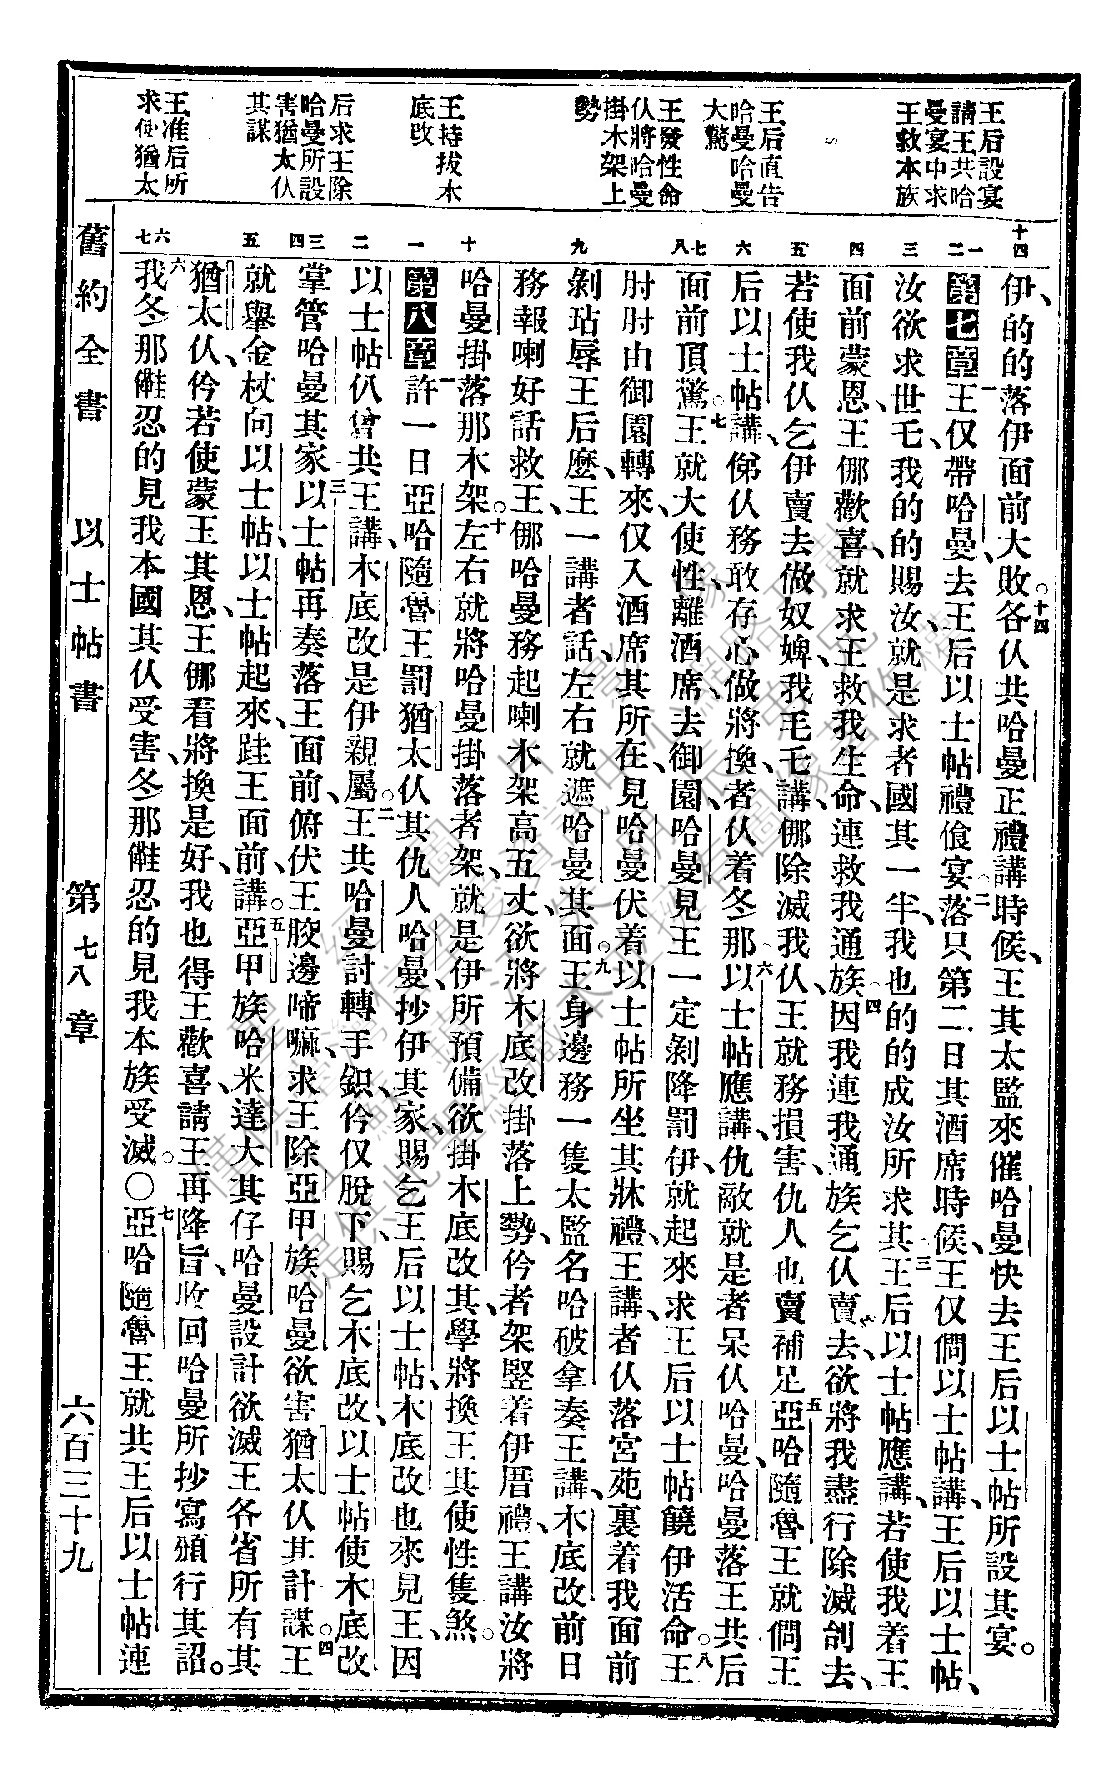 王后設宴
請王共哈
曼宴中求
王救本族
王后直告
哈曼哈曼
大驚
王發性命
仈將哈曼
掛木架上
勢
王持拔木
底改
后求王除
哈曼所設
害猶太仈
其謀
王准后所
求使猶太
十四
一二
三
四
五
六
七八
九
十
一
二
三四
五
六七
伊的的落伊面前大敗各仈共哈曼正禮講時候王其太監來催哈曼快去王后以士帖所設其宴
第七章王仅帶哈曼去王后以士帖禮飧宴落只第二日其酒席時候王仅僩以士帖講王后以士帖
汝欲求世乇我的的賜汝就是求者國其一半我也的的成汝所求其王后以士帖應講若使我着王
面前蒙恩王㑚歡喜就求王救我生命連救我通族因我連我通族乞仈賣去欲將我盡行除滅刣去
若使我仈乞伊賣去做奴婢我毛乇講㑚除滅我仈王就務損害仇人也賣補足亞哈隨魯王就僩王
后以士帖講俤仈務敢存心做將換者仈着冬那以士帖應講仇敵就是者呆仈哈曼哈曼落王共后
面前頂驚王就大使性離酒席去御園哈曼見王一定剝降罰伊就起來求王后以士帖饒伊活命王
肘肘由御園轉來仅入酒席其所在見哈曼伏着以士帖所坐其牀禮王講者仈落宮苑裏着我面前
剝玷辱王后麽王一講者話左右就遮哈曼其面王身邊務一隻太監名哈破拿奏王講木底改前日
務報喇好話救王㑚哈曼務起喇木架高五丈欲將木底改掛落上勢仱者架竪着伊厝禮王講汝將
哈曼掛落那木架左右就將哈曼掛落者架就是伊所預備欲掛木底改其學將換王其使性隻煞
第八章許一日亞哈隨魯王罰猶太仈其仇人哈曼抄伊其家賜乞王后以士帖木底改也來見王因
以士帖仈曾共王講木底改是伊親屬王共哈曼討轉手鉙仱仅脫下賜乞木底改以士帖使木底改
掌管哈曼其家以士帖再奏落王面前俯伏王骹邊啼嘛求王除亞甲族哈曼欲害猶太仈其計謀王
就舉金杖向以士帖以士帖起來跬王面前講亞甲族哈米達大其仔哈曼設計欲滅王各省所有其
猶太仈仱若使蒙王其恩王㑚看將換是好我也得王歡喜請王再降旨收回哈曼所抄寫頒行其詔
我冬那㒕忍的見我本國其仈受害冬那㒕忍的見我本族受滅○亞哈隨魯王就共王后以士帖連
舊約全書 以士帖書 第七八章 六百三十九